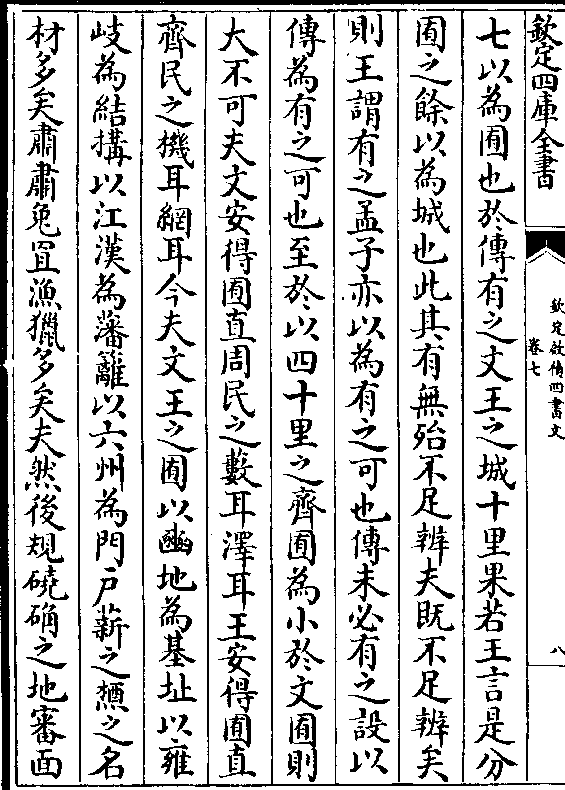 欽定四庫全書
欽定啟禎四書文
卷七
八
七以為囿也於傳有之文王之城十里果若王言是分
囿之餘以為城也此其有無殆不足辨夫既不足辨矣
則王謂有之孟子亦以為有之可也傳未必有之設以
傳為有之可也至於以四十里之齊囿為小於文囿則
大不可夫文安得囿直周民之藪耳澤耳王安得囿直
齊民之機耳網耳今夫文王之囿以豳地為基址以雍
岐為結搆以江漢為藩籬以六州為門戶薪之槱之名
材多矣肅肅兔罝漁獵多矣夫然後規磽确之地審面